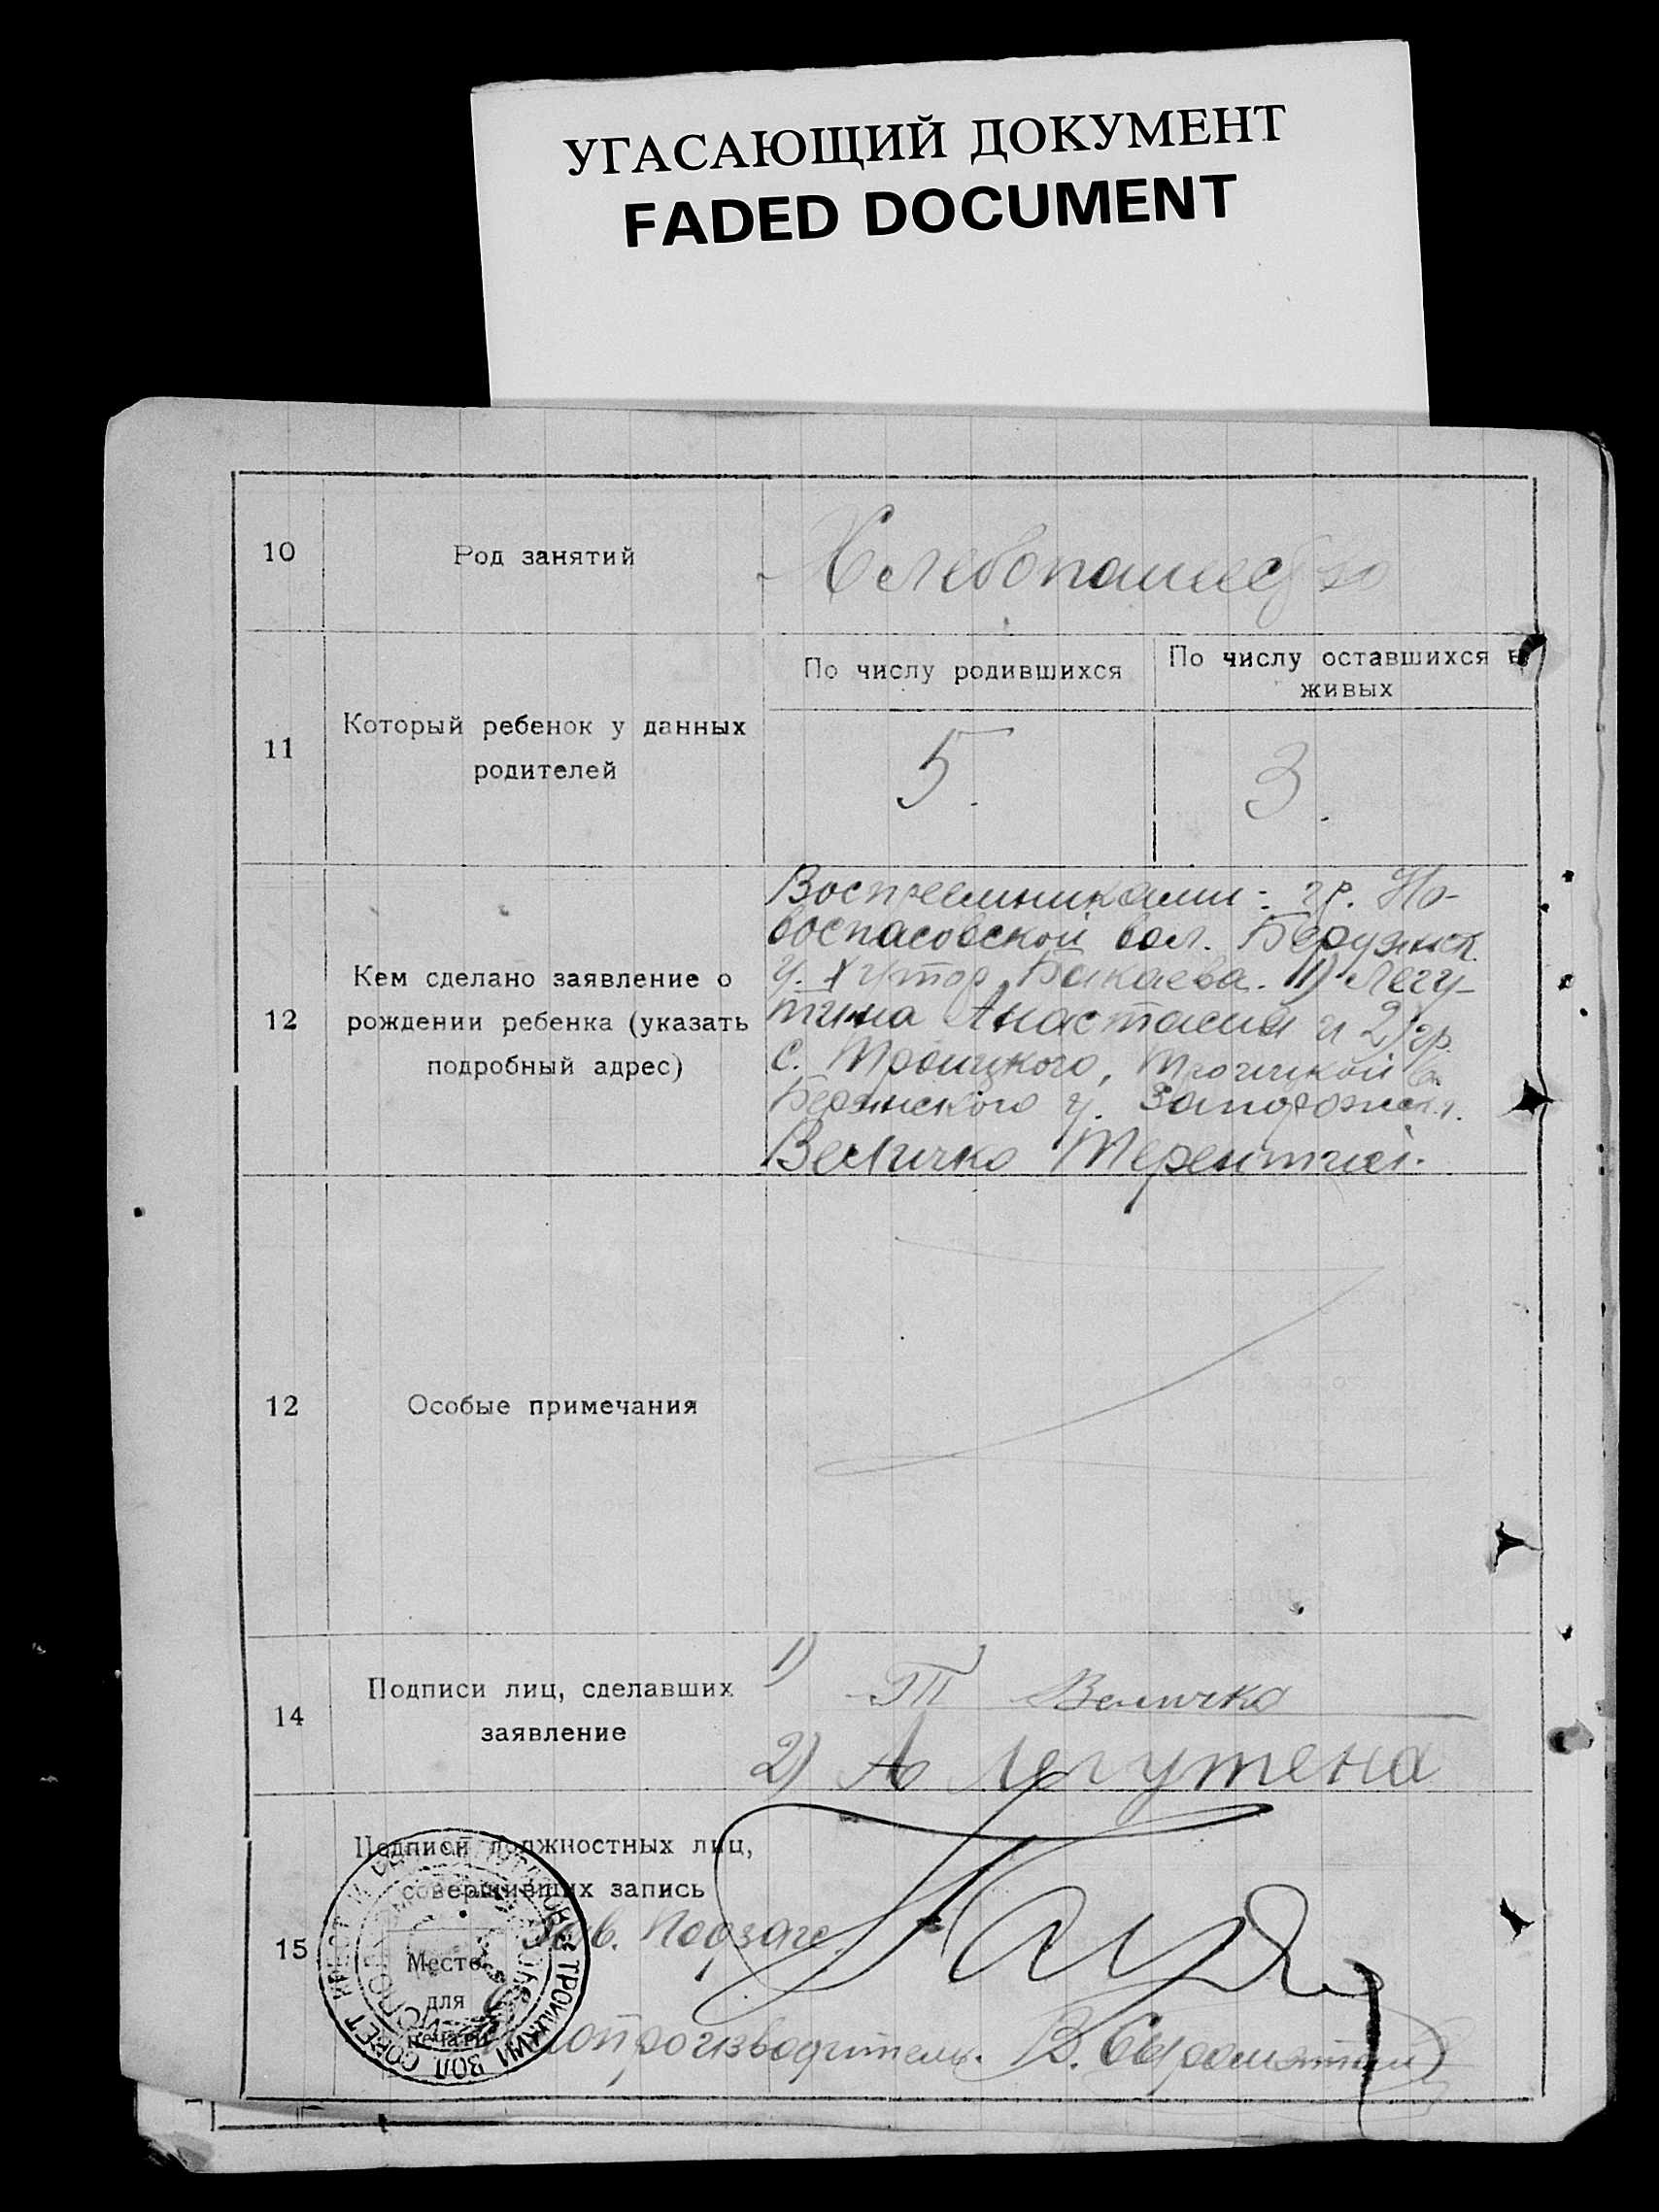 УГАСАЮЩИЙ ДОКУМЕНТ
FADED DOCUMENT
10
Род занятий
Хлебопашество
11
Который ребенок у данных
родителей
По числу родившихся
По числу оставшихся в
живых
5.
3.
12
Кем сделано заявление о
рождении ребенка (указать
подробный адрес)
Восприемниками: гр. Но-
воспасовской вол.
у. Хутор Бакаева. 1) Легу-
тина Анастасия и 2) гр.
с. Троицкого, Троицкой в.
у.
Величко Терентий.
12
Особые примечания
14
Подписи лиц, сделавших
заявление
1) Т Величко
2) А Легутена
15
Подписи должностных лиц,
совершивших запись
Зав. Подзагс
Место
для
печати
ТРОИЦКИЙ ВОЛ. СОВЕТ
В.